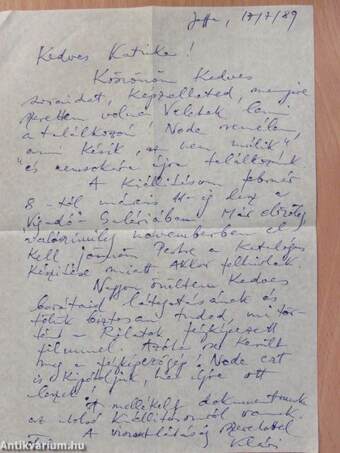 Jaffa, 17/7/89
Kedves Katrika!
Köszönöm Kedves
soraidat, képzelheted, mennyire
szerettem volna Veletek lenni
a találkozón! No de remélem,
ami késik, az nem múlik"
"és remsokára újra találkozunk
A kiállításom február
8-tól március 11-ig lesz a
Vigadó Galériában. Már előzőleg
valószínűleg novemberben el
kell jönnöm Pestre a katalógus
készítése miatt. Akkor felhívlak.
Nagyon örültem Kedves
barátaid látogatásának és
tőlük biztosan tudod, mi tör-
tént - Rólatok fényképezett
filmmel. Azóta se került
meg a fényképezőgép! No de ezt
is kipótoljuk, ha újra ott
leszek!
A mellékelt dokumentumok
az utolsó kiállításomról vannak.
A viszontlátásig szeretettel
Klári
Antikvarium.hu